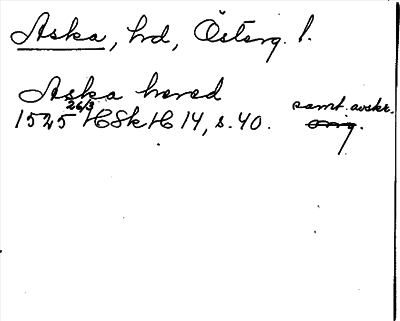 Aska, hrd, Österg. l.
Aska hered
1525 26/3 HSkH 14, s. 40. samt. avskr.
orig.